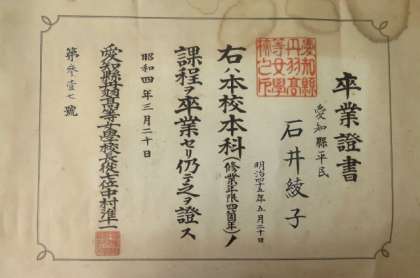 卒業證書
愛知縣平民
石井綾子
明治四十五年五月二十日
右ハ本校本科(修業年限四箇年)ノ
課程ヲ卒業セリ仍テ之ヲ證ス
昭和四年三月二十日
愛知縣丹羽高等女學校長從七位中村準一
第参壹七號
愛知縣
丹羽高
等女學
校之印